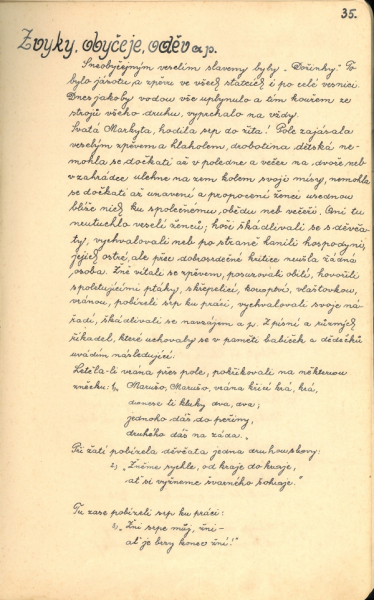 35.
Zvyky, obyčeje, oděv a p.
S neobyčejným veselím slaveny byly „Dožínky." To
bylo jásotu a zpěvu ve všech statcích i po celé vesnici.
Dnes jakoby vodou vše uplynulo a tím kouřem ze
strojů všeho druhu, vyprchalo na vždy.
Svatá Markyta, hodila srp do žita! Pole zajásala
veselým zpěvem a hlaholem, drobotina dětská ne-
mohla se dočkati až v poledne a večer na dvoře neb
v zahrádce ulehne na zem kolem svojí mísy, nemohla
se dočkati až unavení a propocení ženci usednou
blíže nich ku společnému obědu neb večeři. Ani tu
neutuchlo veselí ženců; hoši škádlívali se s děvča-
ty, vychvalovali neb po straně hanili hospodyni,
jejich ostré, ale při dobrosrdečné kritice neušla žádná
osoba. Žně vítali se zpěvem, posunovali obilí, hovořili
s poletujícími ptáky, skřepelicí, konoptví, vlaštovkou,
vránou, pobízeli srp ku práci, vychvalovali svoje ná-
řadí, škádlívali se navzájem a p. Z písní a různých
říkadel, které uchovaly se v paměti babiček a dědečků
uvádím následující:
Letěla-li vrána přes pole, pokřikovali na některou
žnečku: 1) Marušo, Marušo, vrána křičí krá, krá,
donese ti kluky dva, dva;
jednoho dáš do peřiny,
druhého dáš na záda."
Při žatí pobízela děvčata jedna druhou slovy:
2) „Žněme rychle, od kraje do kraje,
ať si vyžneme švarného šohaje."
Tu zase pobízeli srp ku práci:
3) „Žni srpe můj, žni –
ať je brzy konec žní!"